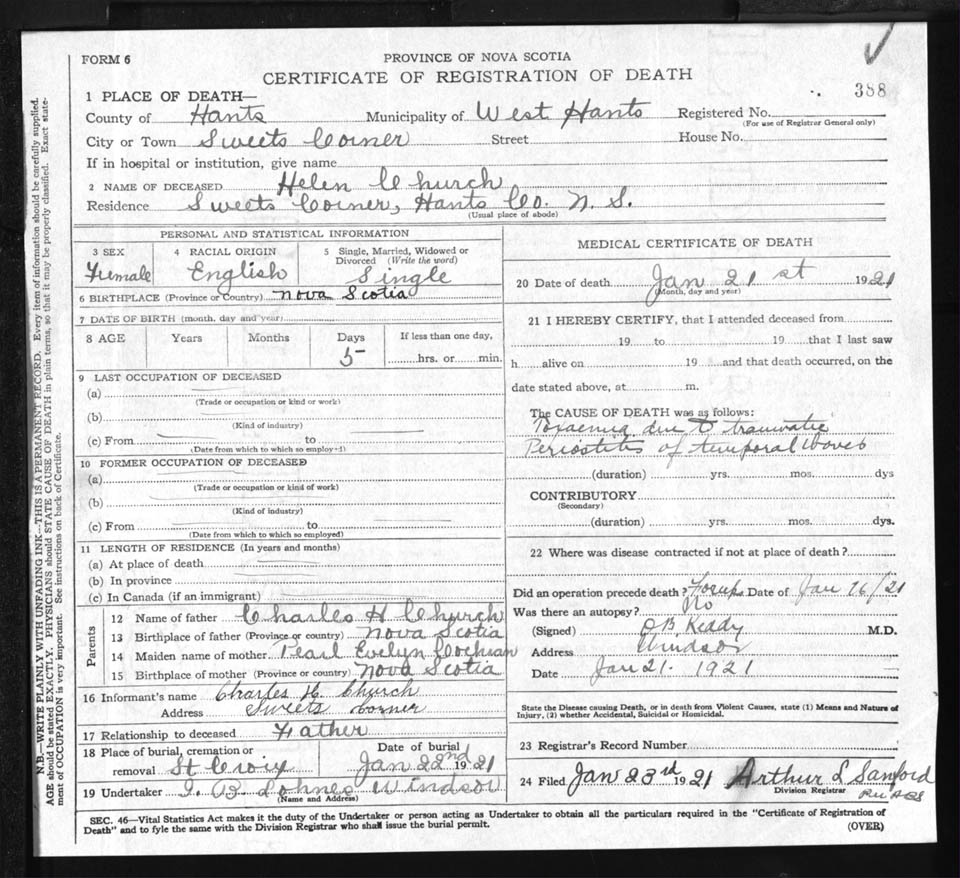 FORM 6
PROVINCE OF NOVA SCOTIA
CERTIFICATE OF REGISTRATION OF DEATH
388
1 PLACE OF DEATH—
County of Hants Municipality of West Hants Registered No.
(For use of Registrar General only)
City or Town Sweets Corner Street House No.
If in hospital or institution, give name
2 NAME OF DECEASED Helen Church
Residence Sweets Corner, Hants Co. N. S.
(Usual place of abode)
PERSONAL AND STATISTICAL INFORMATION
3 SEX 4 RACIAL ORIGIN 5 Single, Married, Widowed or Divorced (Write the word)
Female English Single
6 BIRTHPLACE (Province or Country) Nova Scotia
7 DATE OF BIRTH (month, day and year)
8 AGE Years Months Days If less than one day,
5 hrs. or min.
9 LAST OCCUPATION OF DECEASED
(a)
(Trade or occupation or kind of work)
(b)
(Kind of industry)
(c) From to
(Date from which to which so employed)
10 FORMER OCCUPATION OF DECEASED
(a)
(Trade or occupation or kind of work)
(b)
(Kind of industry)
(c) From to
(Date from which to which so employed)
11 LENGTH OF RESIDENCE (In years and months)
(a) At place of death
(b) In province
(c) In Canada (if an immigrant)
Parents
12 Name of father Charles H Church
13 Birthplace of father (Province or country) Nova Scotia
14 Maiden name of mother Pearl Evelyn Cochran
15 Birthplace of mother (Province or country) Nova Scotia
16 Informant's name Charles H. Church
Address Sweets Corner
17 Relationship to deceased Father
18 Place of burial, cremation or removal St Croix Date of burial Jan 22nd 1921
19 Undertaker I. B Lohnes Windsor
(Name and Address)
MEDICAL CERTIFICATE OF DEATH
20 Date of death Jan 21st 1921
(Month, day and year)
21 I HEREBY CERTIFY, that I attended deceased from
19 to 19 that I last saw
h alive on 19 and that death occurred, on the
date stated above, at m.
The CAUSE OF DEATH was as follows:
Toxaemia due to traumatic
Periostitis of temporal bones
(duration) yrs. mos. dys
CONTRIBUTORY
(Secondary)
(duration) yrs. mos. dys.
22 Where was disease contracted if not at place of death?
Did an operation precede death? Forceps Date of Jan 16/21
Was there an autopsy? No
(Signed) Reddy M.D.
Address Windsor
Date Jan 21. 1921
State the Disease causing Death, or in death from Violent Causes, state (1) Means and Nature of
Injury, (2) whether Accidental, Suicidal or Homicidal.
23 Registrar's Record Number
24 Filed Jan 23rd 1921 Arthur L Sanford
Division Registrar
SEC. 46—Vital Statistics Act makes it the duty of the Undertaker or person acting as Undertaker to obtain all the particulars required in the "Certificate of Registration of
Death" and to fyle the same with the Division Registrar who shall issue the burial permit. (OVER)
N.B.—WRITE PLAINLY WITH UNFADING INK—THIS IS A PERMANENT RECORD. Every item of information should be carefully supplied.
AGE should be stated EXACTLY. PHYSICIANS should STATE CAUSE OF DEATH in plain terms, so that it may be properly classified. Exact state-
ment of OCCUPATION is very important. See instructions on back of Certificate.